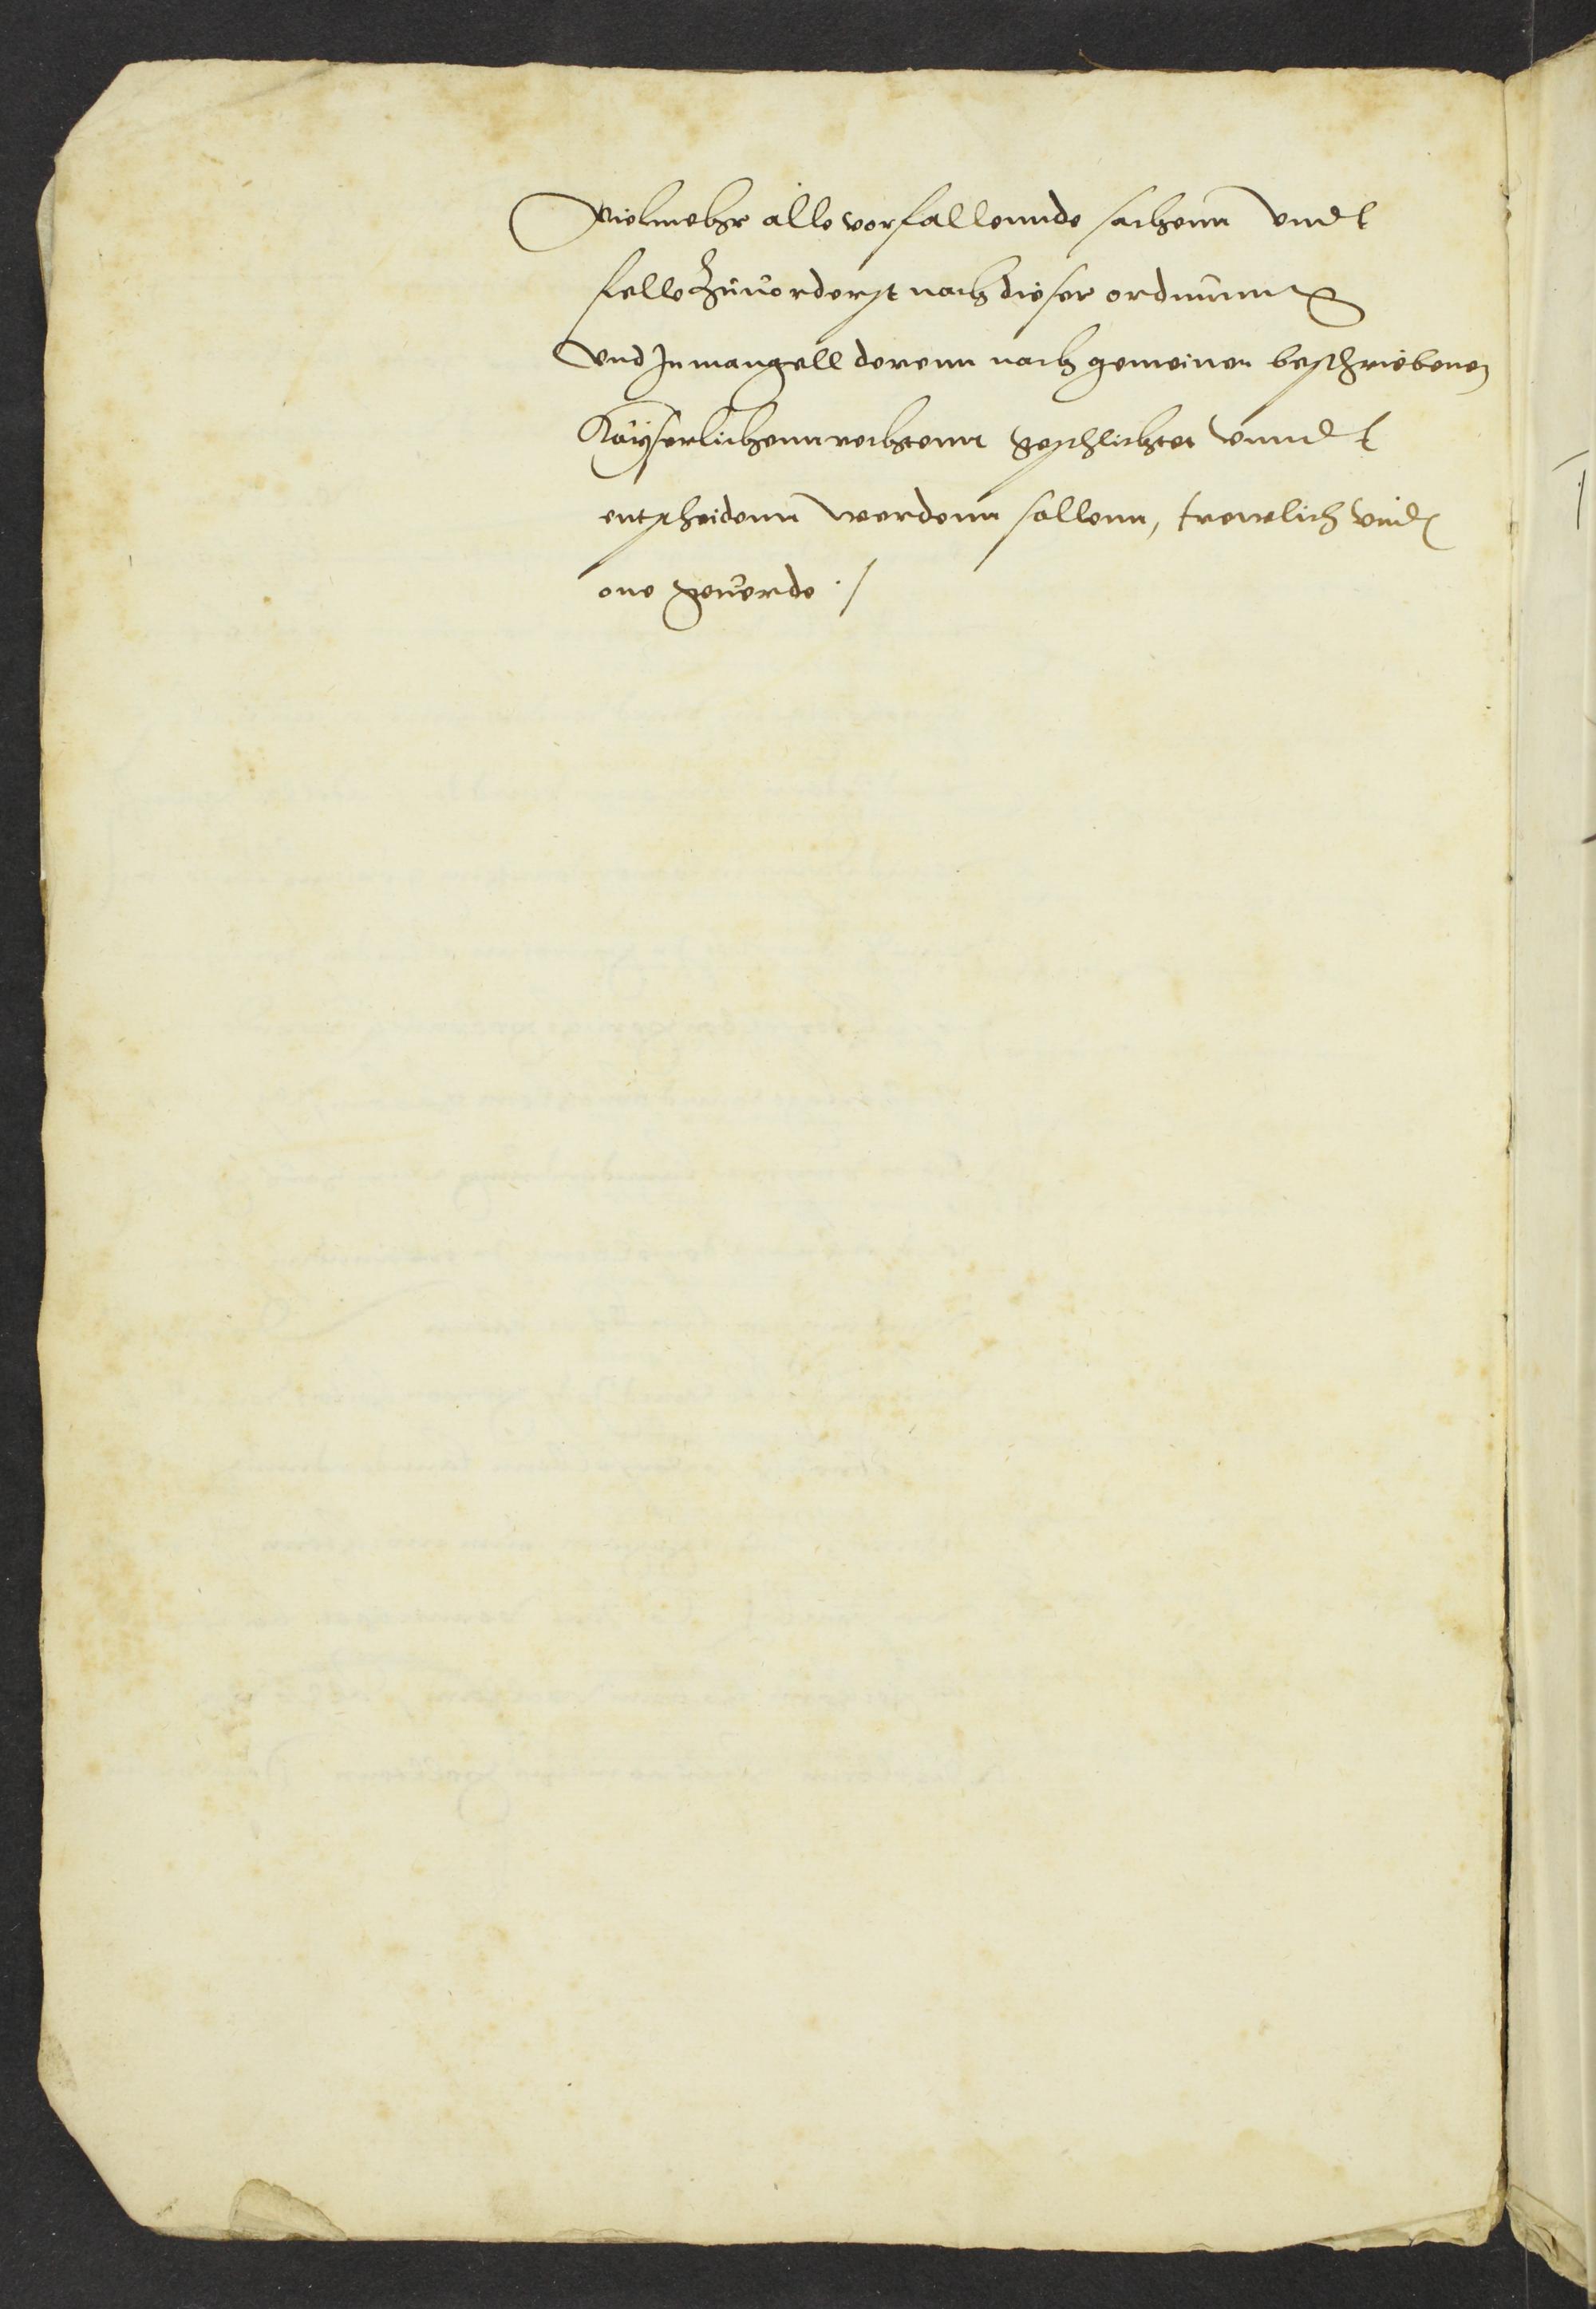 Vielmehr alle vorfallennde sachenn vndt
felle Zuuorderst nach dieser ordnunng
vnd In mangell derenn nach gemeinen beschriebenen
Kayserlichenn rechtenn geschlichtet vnndt
entscheidenn werdenn sollenn, trewlich vnd
one geuerde ./